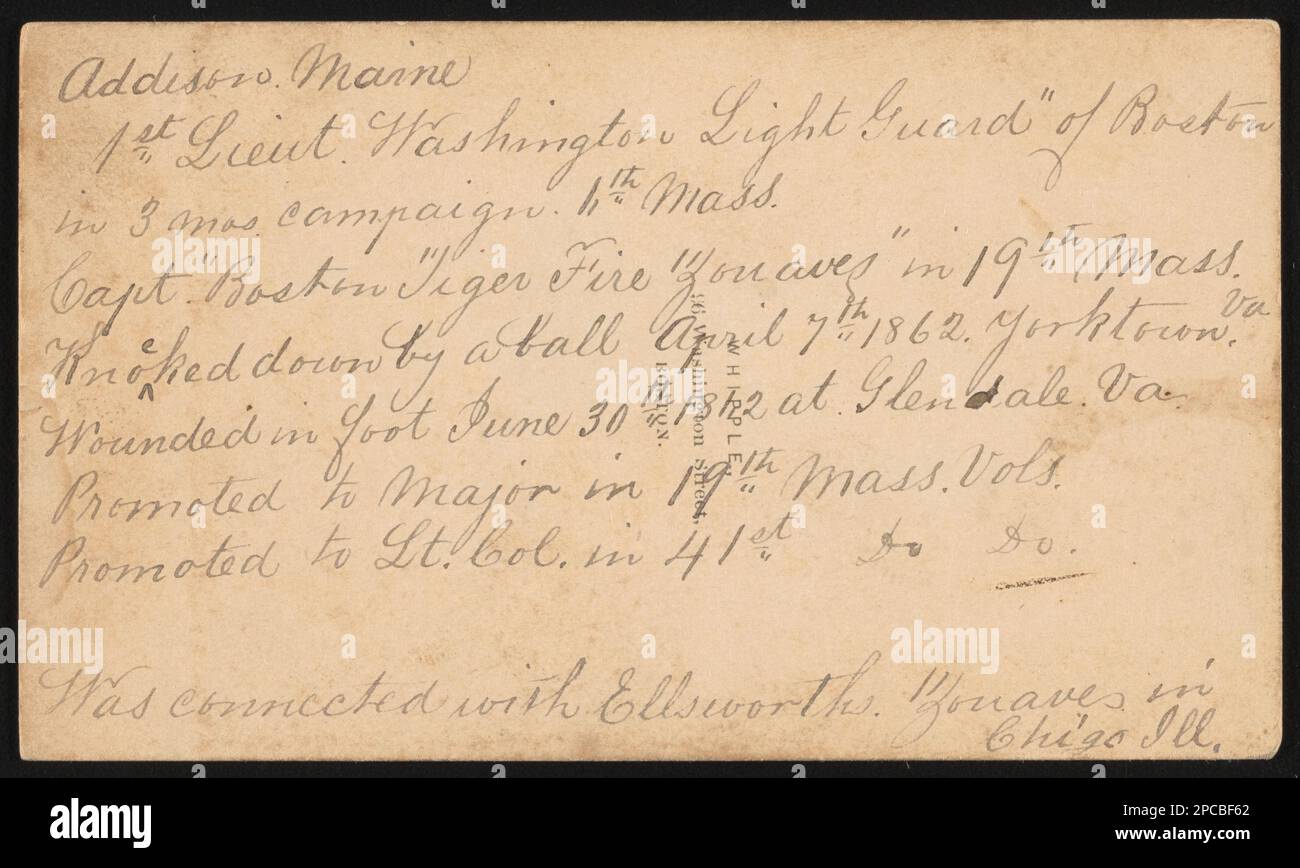 Addison. Maine
1st Lieut. Washington Light Guard" of Boston
in 3 mos. campaign. 6th Mass.
Capt. "Boston Tiger Fire Zouaves" in 19th Mass.
Knocked down by a ball April 7th 1862. Yorktown, Va
Wounded in foot June 30th 1862 at Glendale. Va.
Promoted to Major in 19th Mass. Vols.
Promoted to Lt. Col. in 41st Do Do.
Was connected with Ellsworths. Zouaves in
Chigo Ill.
WHIPPLE,
96 Washington Street,
BOSTON.
alamy
Image ID: 2PCBF62
www.alamy.com